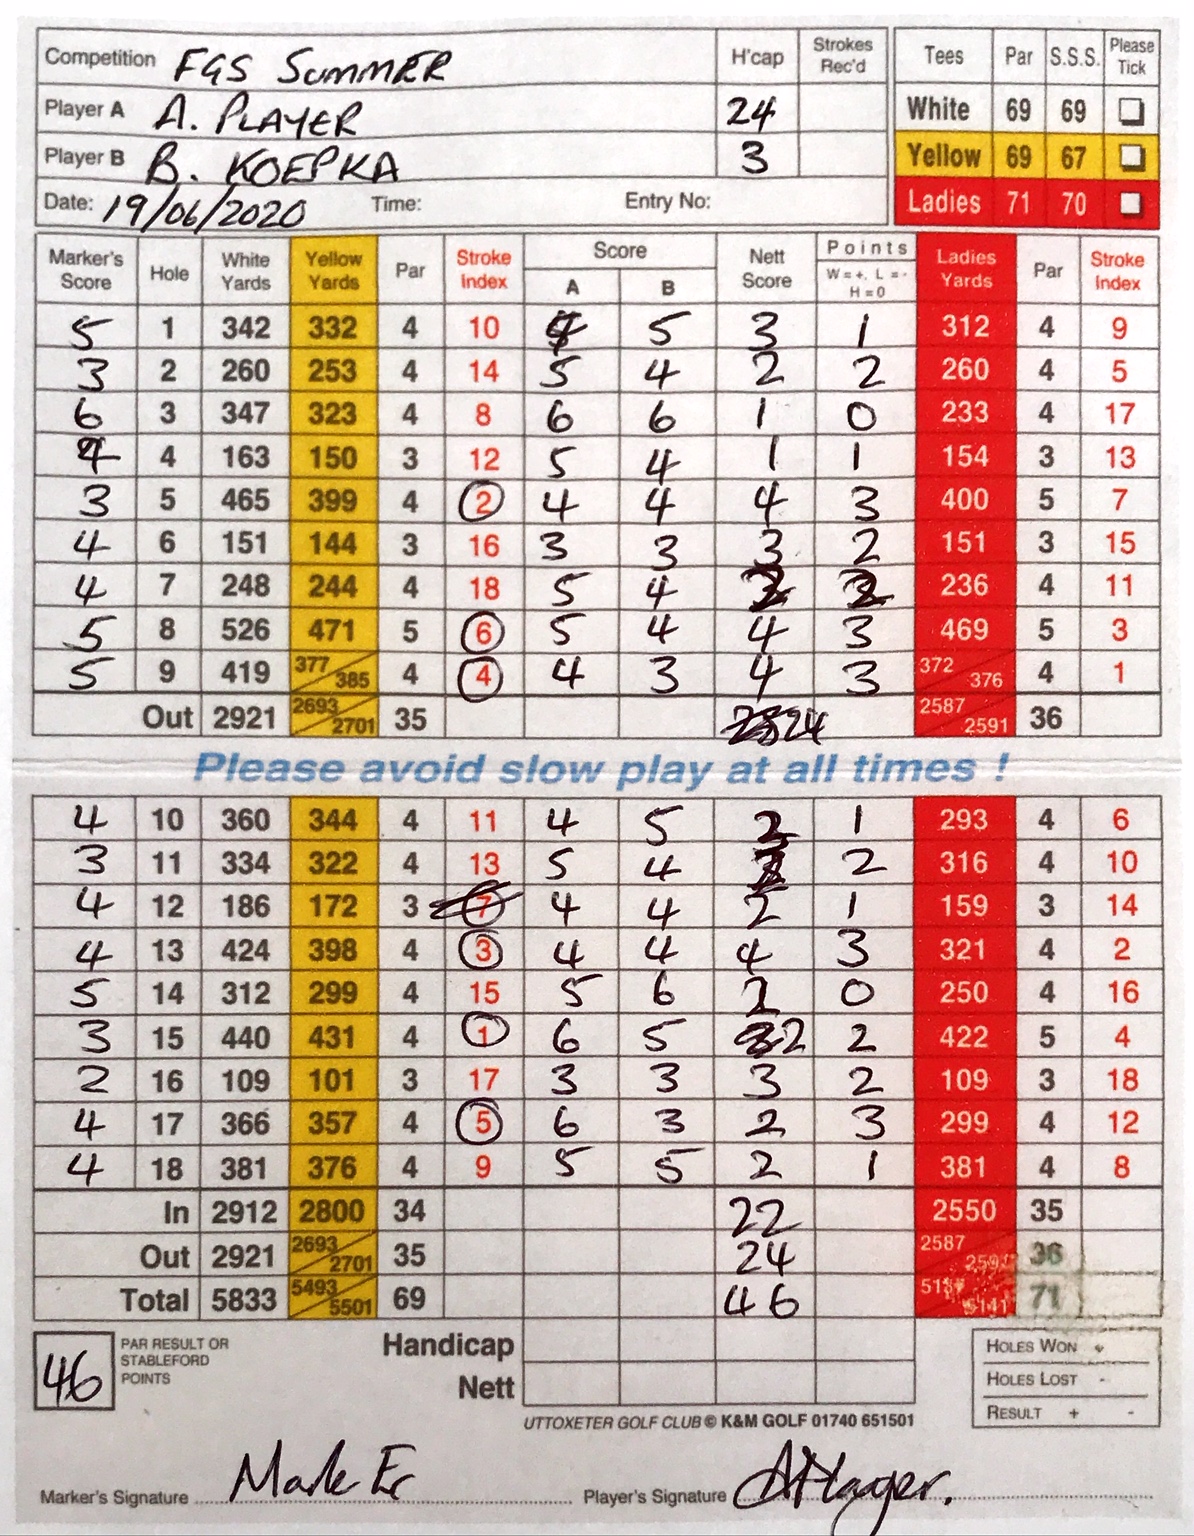 Competition FGS SUMMER H'cap Strokes Rec'd Tees Par S.S.S. Please Tick
Player A A. PLAYER 24 White 69 69
Player B B. KOEPKA 3 Yellow 69 67
Date: 19/06/2020 Time: Entry No: Ladies 71 70
Marker's Score Hole White Yards Yellow Yards Par Stroke Index Score A B Nett Score Points W=+, L=- H=0 Ladies Yards Par Stroke Index
5 1 342 332 4 10 5 3 1 312 4 9
3 2 260 253 4 14 5 4 2 2 260 4 5
6 3 347 323 4 8 6 6 1 0 233 4 17
4 4 163 150 3 12 5 4 1 1 154 3 13
3 5 465 399 4 2 4 4 4 3 400 5 7
4 6 151 144 3 16 3 3 3 2 151 3 15
4 7 248 244 4 18 5 4 2 2 236 4 11
5 8 526 471 5 6 5 4 4 3 469 5 3
5 9 419 377/385 4 4 4 3 4 3 372/376 4 1
Out 2921 2693/2701 35 24 2587/2591 36
Please avoid slow play at all times !
4 10 360 344 4 11 4 5 2 1 293 4 6
3 11 334 322 4 13 5 4 2 316 4 10
4 12 186 172 3 7 4 4 2 1 159 3 14
4 13 424 398 4 3 4 4 4 3 321 4 2
5 14 312 299 4 15 5 6 2 0 250 4 16
3 15 440 431 4 1 6 5 2 2 422 5 4
2 16 109 101 3 17 3 3 3 2 109 3 18
4 17 366 357 4 5 6 3 2 3 299 4 12
4 18 381 376 4 9 5 5 2 1 381 4 8
In 2912 2800 34 22 2550 35
Out 2921 2693/2701 35 24 2587 36
Total 5833 5493/5501 69 46 5141 71
46 PAR RESULT OR STABLEFORD POINTS Handicap HOLES WON +
Nett HOLES LOST -
RESULT + -
UTTOXETER GOLF CLUB © K&M GOLF 01740 651501
Marker's Signature Mark Er Player's Signature A Player.